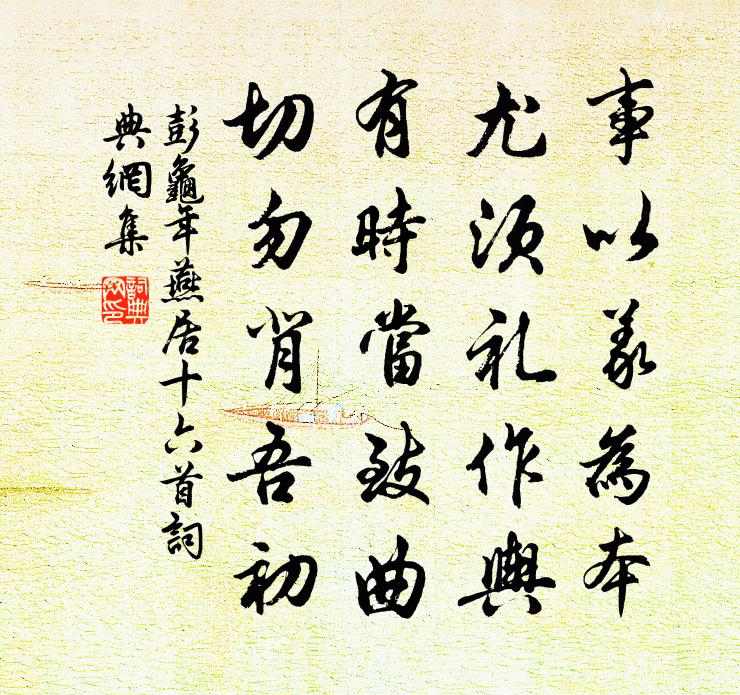 事以義為本
尤須礼作輿
有時當致曲
切勿背吾初
彭龜年燕居十六首詞
典網集
詞典